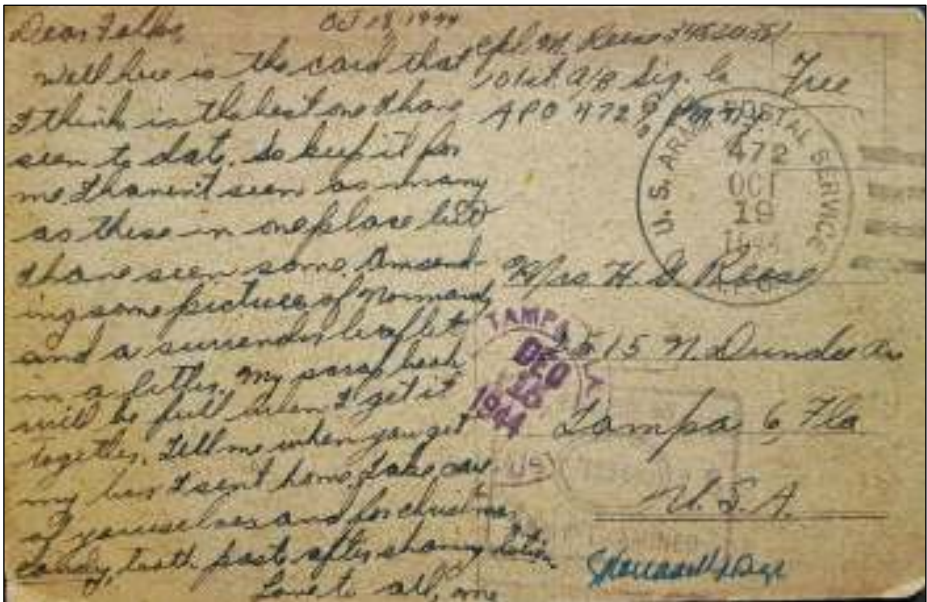 Oct 18, 1944
Dear Folks,
Well here is the card that
I think is the best one I have
seen to date. So keep it for
me. I haven't seen as many
as these in one place but
I have seen some. Am send-
ing some pictures of Normandy
and a surrender leaflet
in a letter. My scrap book
will be full when I get it
together. Tell me when you get
my box I sent home. Take care
of yourselves and for christmas
candy, tooth paste, after shaving lotion
Love to all, me
Cpl M. Reese
101st A/B Sig. Co
APO 472
Free
U. S. ARMY POSTAL SERVICE
472
OCT
19
1944
APO
Mrs H. Reese
15 N. Dundee Av
Tampa 6, Fla.
U.S.A.
TAMPA
DEC
1944
US
EXAMINER